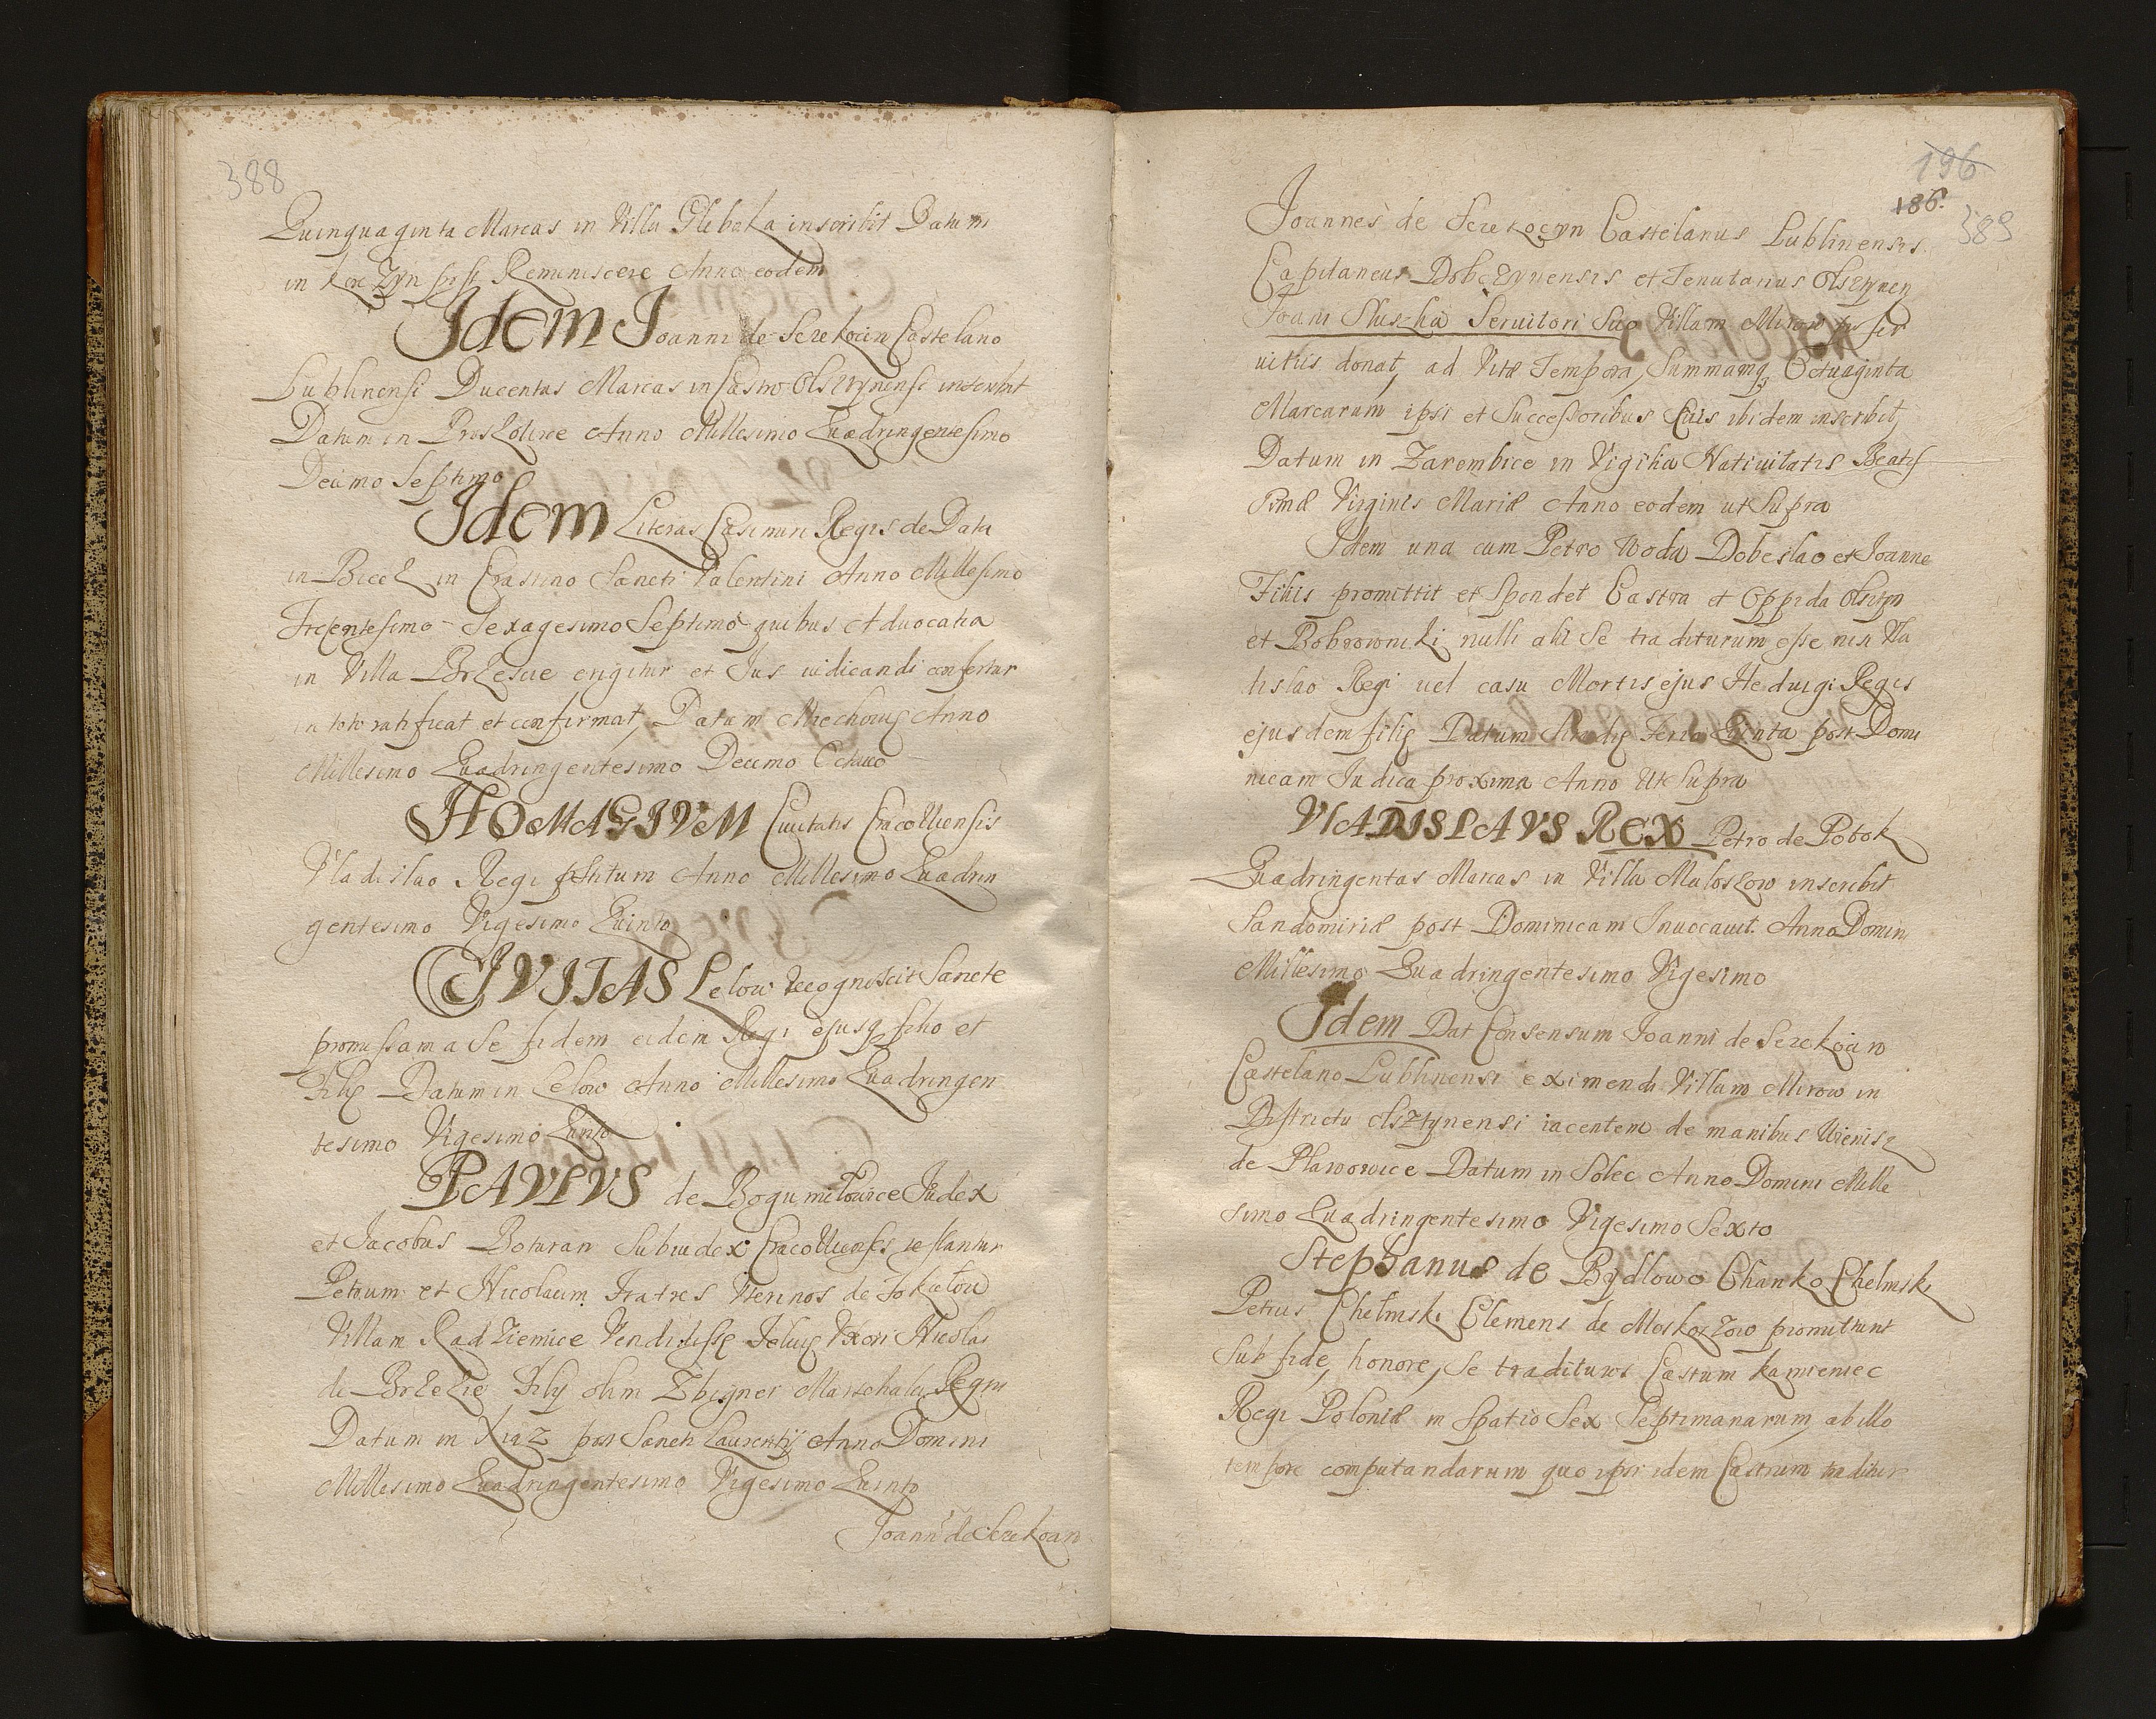 388
Quinquaginta Marcas in Villa Gleboka inscribit Datum
in Korczyn Reminiscere Anno eodem
Idem Joanni de Sczekocin Castelano
Lublinensi Ducentas Marcas in Castro Olsztynensi inscribit
Datum in Proszolwe Anno Millesimo Quadringentesimo
Decimo Septimo
Idem Literas Casimiri Regis de Data
in Biecz in Crastino Sancti Valentini Anno Millesimo
Trecentesimo Sexagesimo Septimo quibus Advocatia
in Villa erigitur et Jus iudicandi confertur
in toto ratificat et confirmat, Datum Miechoviae Anno
Millesimo Quadringentesimo Decimo Octavo
HOMAGIVM Civitatis Cracoviensis
Vladislao Regi pstitum Anno Millesimo Quadrin
gentesimo Vigesimo Quinto
CIVITAS Lelow recognoscit Sancte
promissam a Se fidem eidem Regi ejusq filio et
Filiae Datum in Lelow Anno Millesimo Quadringen
tesimo Vigesimo Quinto
PAVLVS de Bogumilowice Judex
et Jacobus Boturan Subiudex Cracovienses testantur
Petrum et Nicolaum Fratres Vterinos de Tokalow
Villam Radziemice Vendidisse Vxori Nicolai
de Brzezie Filij olim Zbignei Marschalci Regni
Datum in Xiaz post Sancti Laurentij Anno Domini
Millesimo Quadringentesimo Vigesimo Quinto
Joann de Sczekocin
196
186.
389
Joannes de Sczekocyn Castelanus Lublinensis
Capitaneus Dobczynensis et Tenutarius Olsztynen
Joani Sluszka Servitori Suo Villam Mirow pro ser
vitiis donat, ad Vitæ Tempora, Summamq Octuaginta
Marcarum ipsi et Successoribus Suis ibidem inscribit,
Datum in Zarembice in Vigilia Nativitatis Beatis
simæ Virginis Mariæ Anno eodem ut Supra
Idem una cum Petro Woda Dobeslao et Joanne
Filiis promittit et Spondet Castra et Oppida Olsztyn
et Bobrowniki nulli alii Se traditurum esse nisi Vla
dislao Regi vel casu Mortis ejus Hedvigi Regis
ejusdem filiæ Datum Feria Quinta post Domi
nicam Judica proxima Anno Ut Supra
VLADISLAVS REX Petro de Potok
Quadringentas Marcas in Villa Maloszow inscribit
Sandomiriæ post Dominicam Invocavit Anno Domini
Millesimo Quadringentesimo Vigesimo
Idem Dat Consensum Joanni de Sczekocin
Castelano Lublinensi eximendi Villam Mirow in
Districtu Olsztynensi iacentem de manibus
de Plawowice Datum in Solec Anno Domini Mille
simo Quadringentesimo Vigesimo Sexto
Stephanus de Bydlowo Chanko Chelmski
Petrus Chelmski Clemens de Moskorzow promittunt
Sub fide, honore, Se tradituros Castrum Kamieniec
Regi Poloniæ in Spatio Sex Septimanarum, ab illo
tempore computandarum quo ipsi idem Castrum traditur